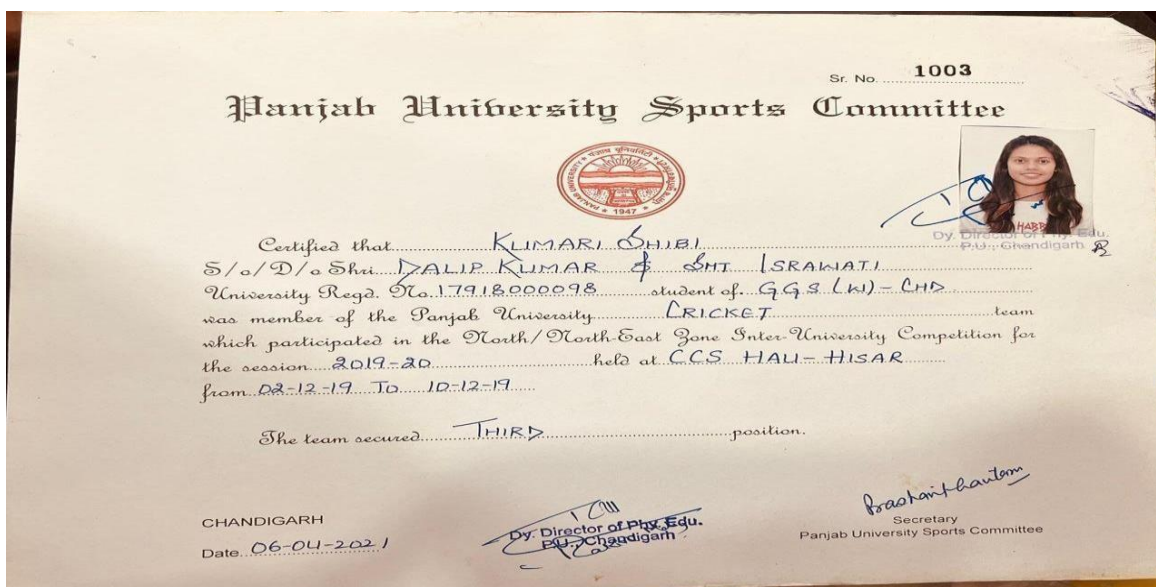 Sr. No. 1003
Panjab University Sports Committee
PANJAB UNIVERSITY
* 1947 *
HABB
Dy. Director of Phy. Edu.
P.U., Chandigarh
Certified that KUMARI SHIBI
S/o/D/o Shri DALIP KUMAR & SMT ISRAWATI
University Regd. No. 17918000098 student of GGS (W)-CHD
was member of the Panjab University CRICKET team
which participated in the North/North-East Zone Inter-University Competition for
the session 2019-20 held at CCS HAU-HISAR
from 02-12-19 To 10-12-19
The team secured THIRD position.
CHANDIGARH
Date 06-04-2021
Dy. Director of Phy. Edu.
P.U., Chandigarh
Secretary
Panjab University Sports Committee